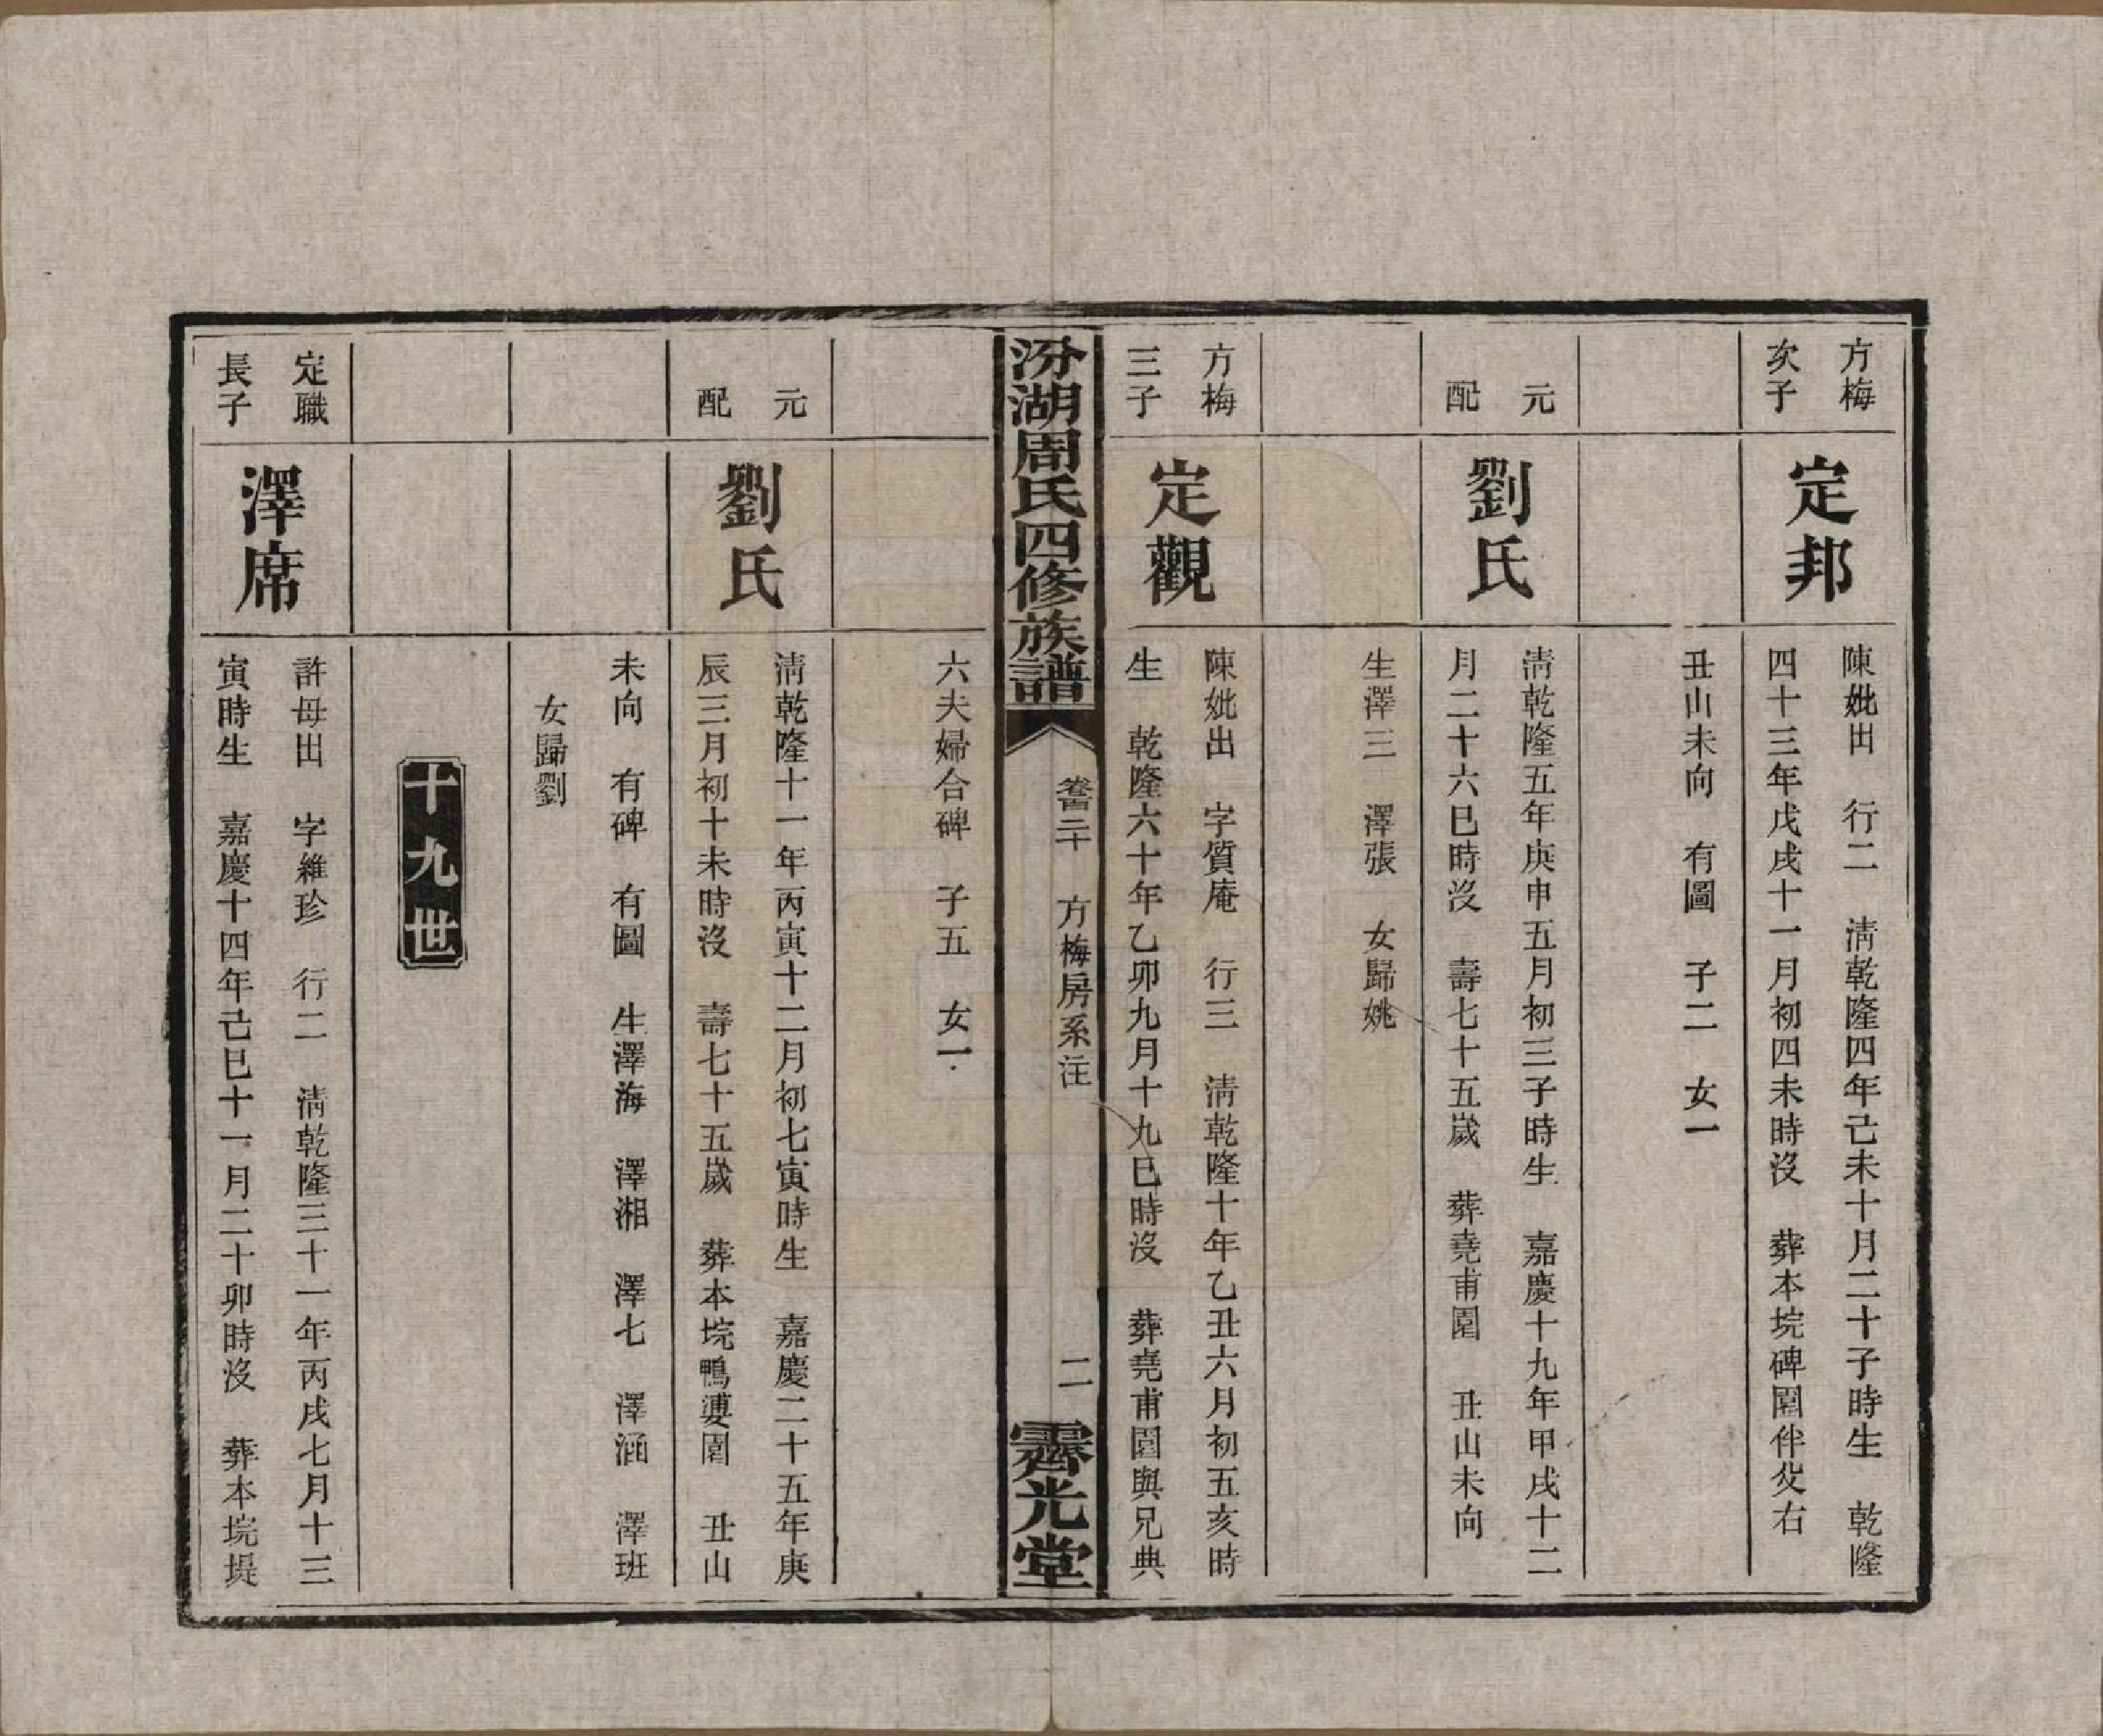 方梅
次子
定邦
陳妣出　行二　淸乾隆四年己未十月二十子時生　乾隆
四十三年戊戌十一月初四未時沒　葬本垸碑園伴父右
丑山未向　有圖　子二　女一
元
配
劉氏
淸乾隆五年庚申五月初三子時生　嘉慶十九年甲戌十二
月二十六巳時沒　壽七十五歲　葬堯甫園　丑山未向
生澤三　澤張　女歸姚
方梅
三子
定觀
陳妣出　字質庵　行三　淸乾隆十年乙丑六月初五亥時
生　乾隆六十年乙卯九月十九巳時沒　葬堯甫園與兄典
汾湖周氏四修族譜
卷二十　方梅房系注
二
霽光堂
六夫婦合碑　子五　女一
元
配
劉氏
淸乾隆十一年丙寅十二月初七寅時生　嘉慶二十五年庚
辰三月初十未時沒　壽七十五歲　葬本垸鴨婆園　丑山
未向　有碑　有圖　生澤海　澤湘　澤七　澤涵　澤班
女歸劉
十九世
定職
長子
澤席
許母出　字維珍　行二　淸乾隆三十一年丙戌七月十三
寅時生　嘉慶十四年己巳十一月二十卯時沒　葬本垸堤